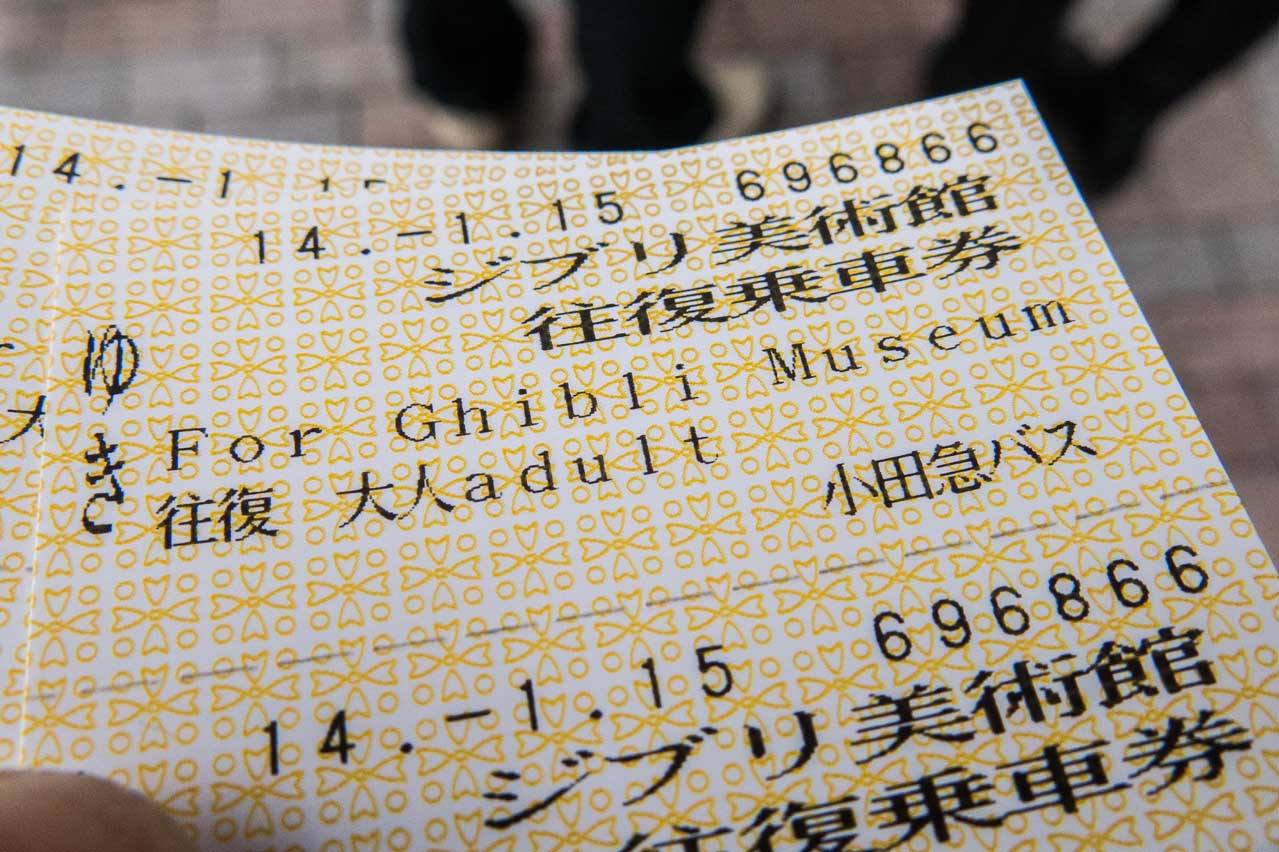 14.-1
14.-1.15 696866
ジブリ美術館
往復乗車券
ゆき
For Ghibli Museum
往復 大人adult
小田急バス
14.-1.15 696866
ジブリ美術館
往復乗車券